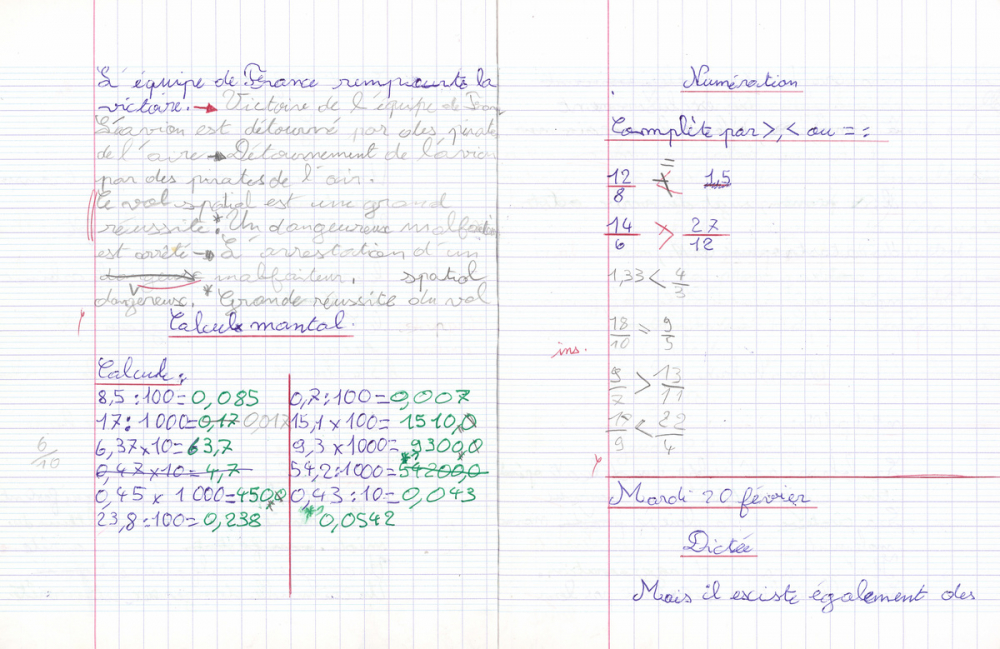 L'équipe de France remporte la
victoire. → Victoire de l'équipe de Fran
L'avion est détourné par des pirat
de l'aire → Détournement de l'avion
par des pirates de l'air.
Le vol spatial est une grand
réussite * Un dangeureux malfaiteur
est arrêté → L'arrestation d'un
malfaiteur. spatial
dangereux. * Grande réussite du vol
Calculs mantal.
Calcule :
8,5 : 100 = 0,085
17 : 1000 = 0,17 0,017
6,37 x 10 = 63,7
0,47 x 10 = 4,7
0,45 x 1 000 = 4500
23,8 : 100 = 0,238
0,7 : 100 = 0,007
15,1 x 100 = 1510,0
9,3 x 1000 = 9300,0
54,2 : 1000 = 54200,0
0,43 : 10 = 0,043
* 0,0542
6/10
Numération
Complète par >, < ou = :
12/8 = 1,5
14/6 > 27/12
1,33 < 4/3
ins.
18/10 = 9/5
9/7 > 13/11
22/4
Mardi 20 février
Dictée
Mais il existe également des